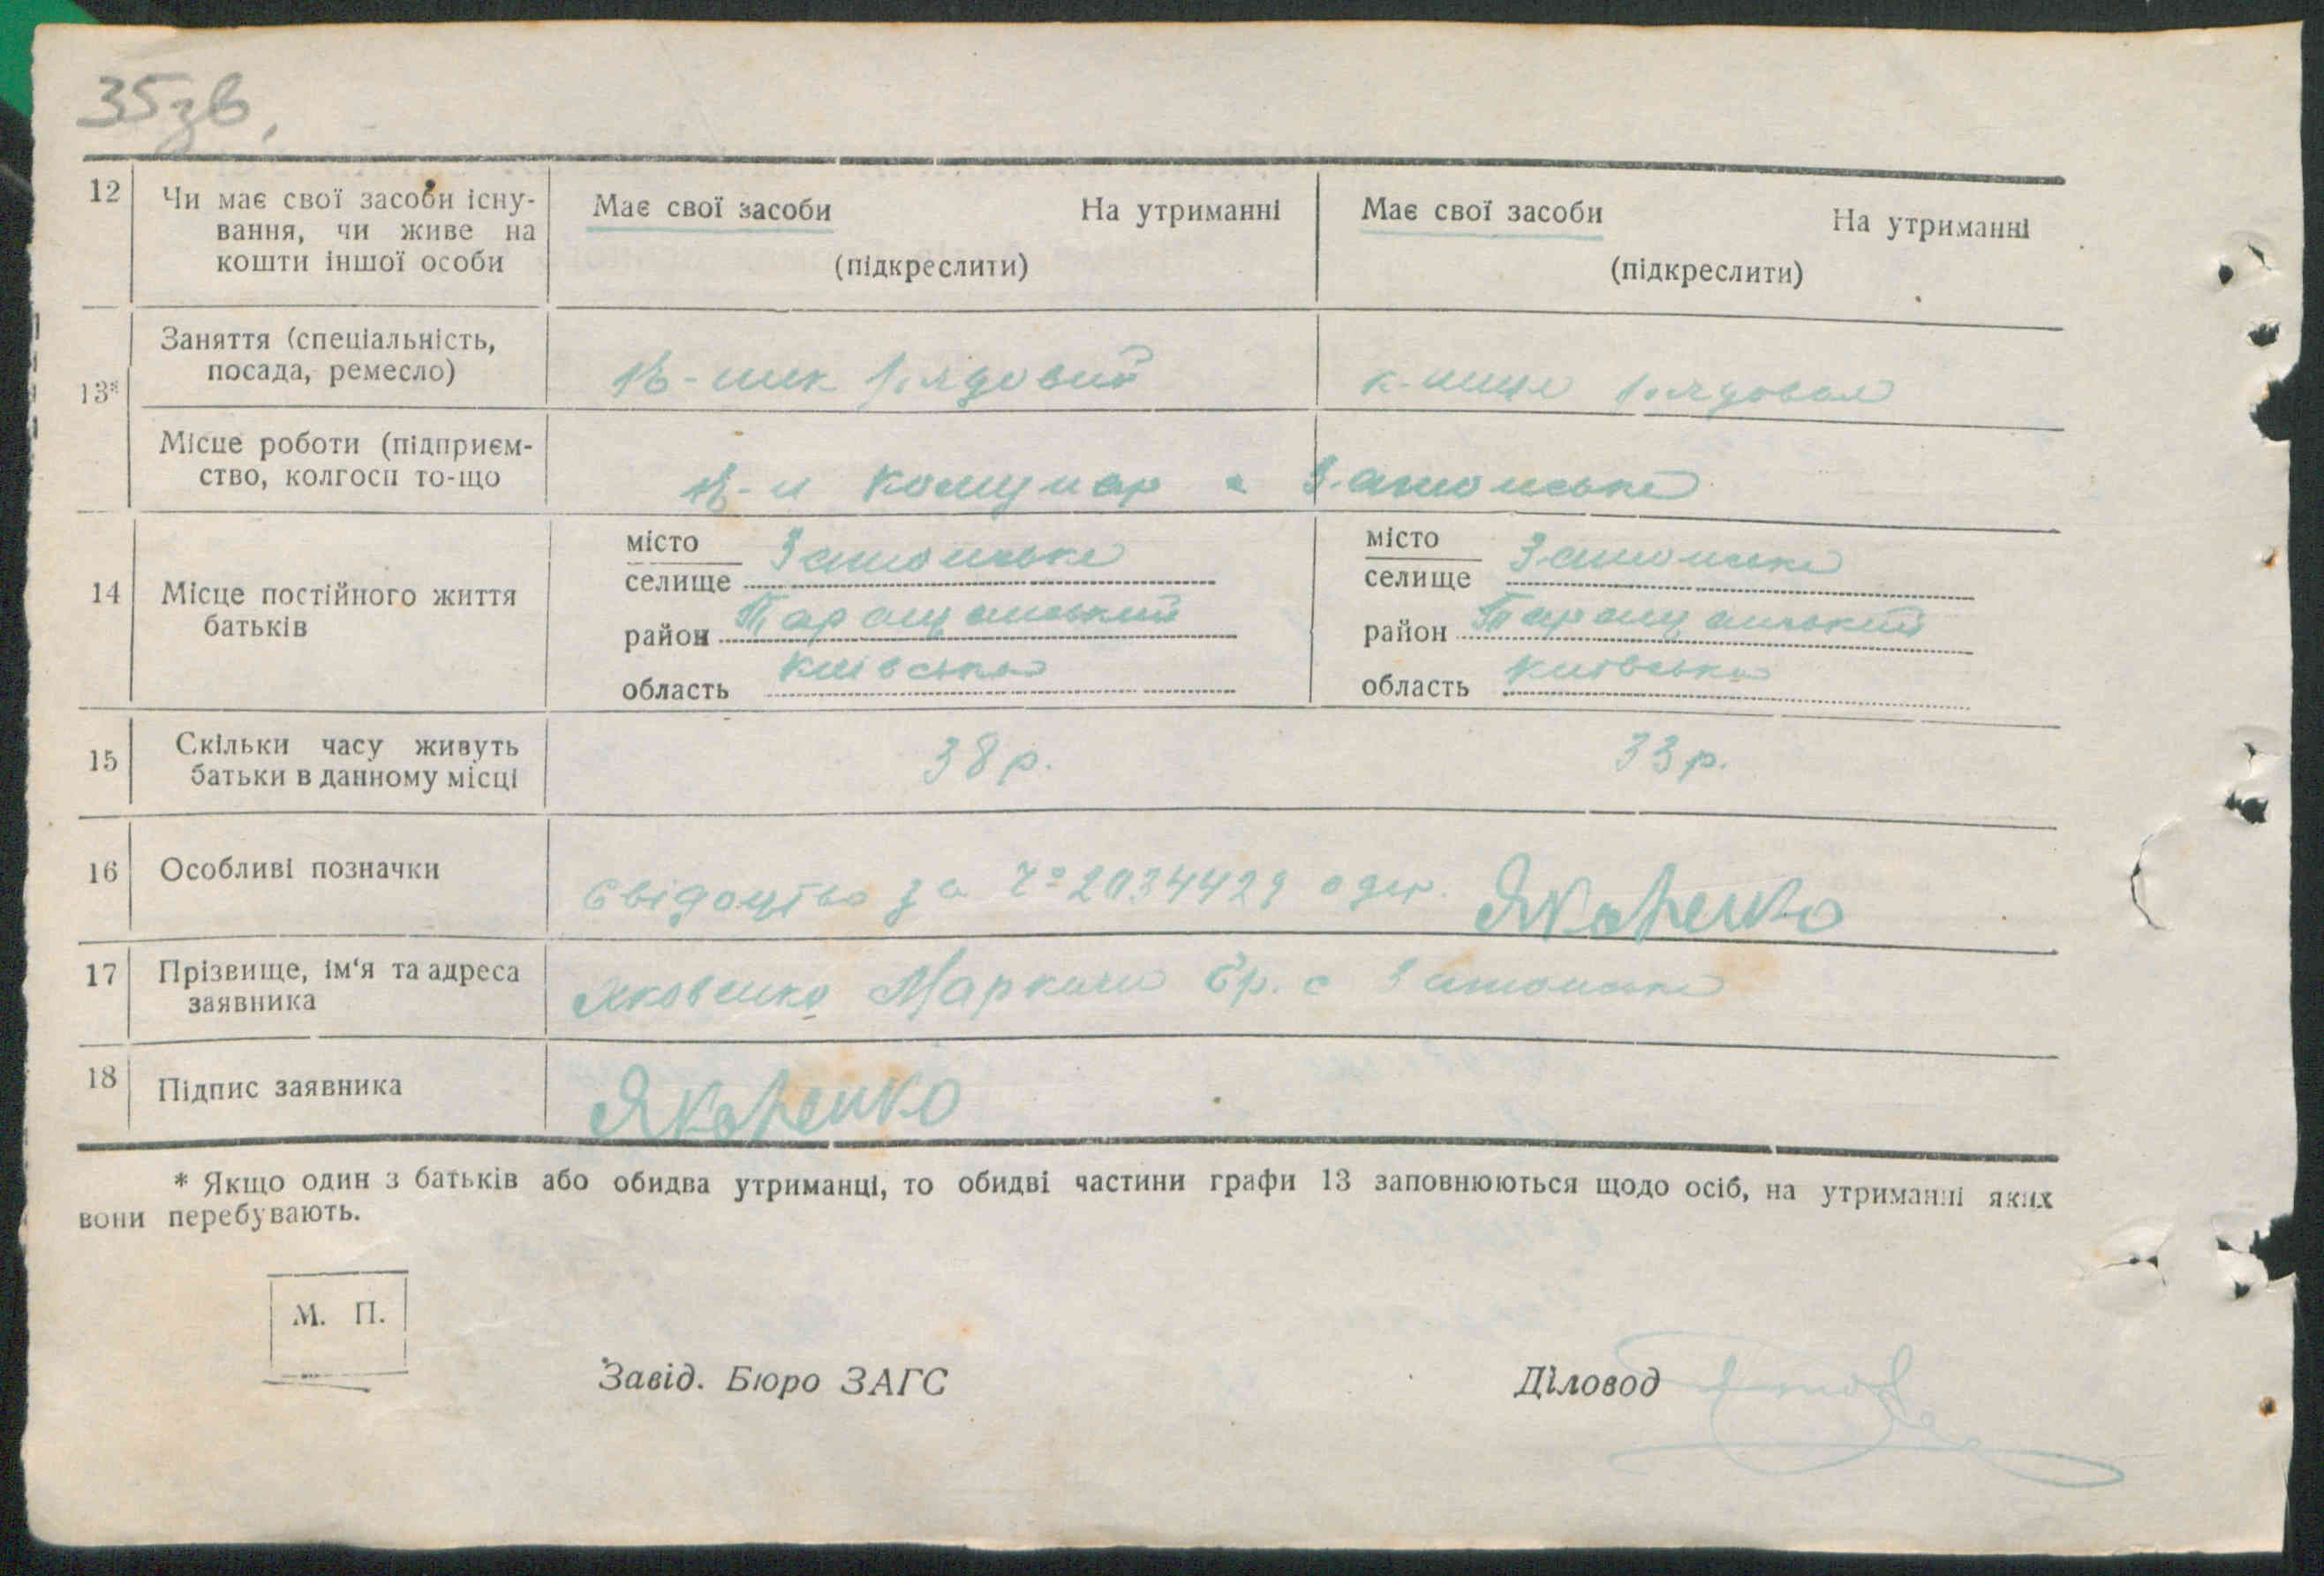 35зв.
12 Чи має свої засоби існу-
вання, чи живе на
кошти іншої особи
Має свої засоби На утриманні
(підкреслити)
Має свої засоби На утриманні
(підкреслити)
13*
Заняття (спеціальність,
посада, ремесло)
к-ник рядовий
к-ниця рядова
Місце роботи (підприєм-
ство, колгосп то-що
к-п Комунар с
14 Місце постійного життя
батьків
місто
селище
район Таращанський
область Київська
місто
селище
район Таращанський
область Київська
15 Скільки часу живуть
батьки в данному місці
38 р.
33 р.
16 Особливі позначки
Свідоцтво за № 2034429 одер. Яковенко
17 Прізвище, ім'я та адреса
заявника
Яковенко с
18 Підпис заявника
Яковенко
* Якщо один з батьків або обидва утриманці, то обидві частини графи 13 заповнюються щодо осіб, на утриманні яких
вони перебувають.
М. П.
Завід. Бюро ЗАГС
Діловод